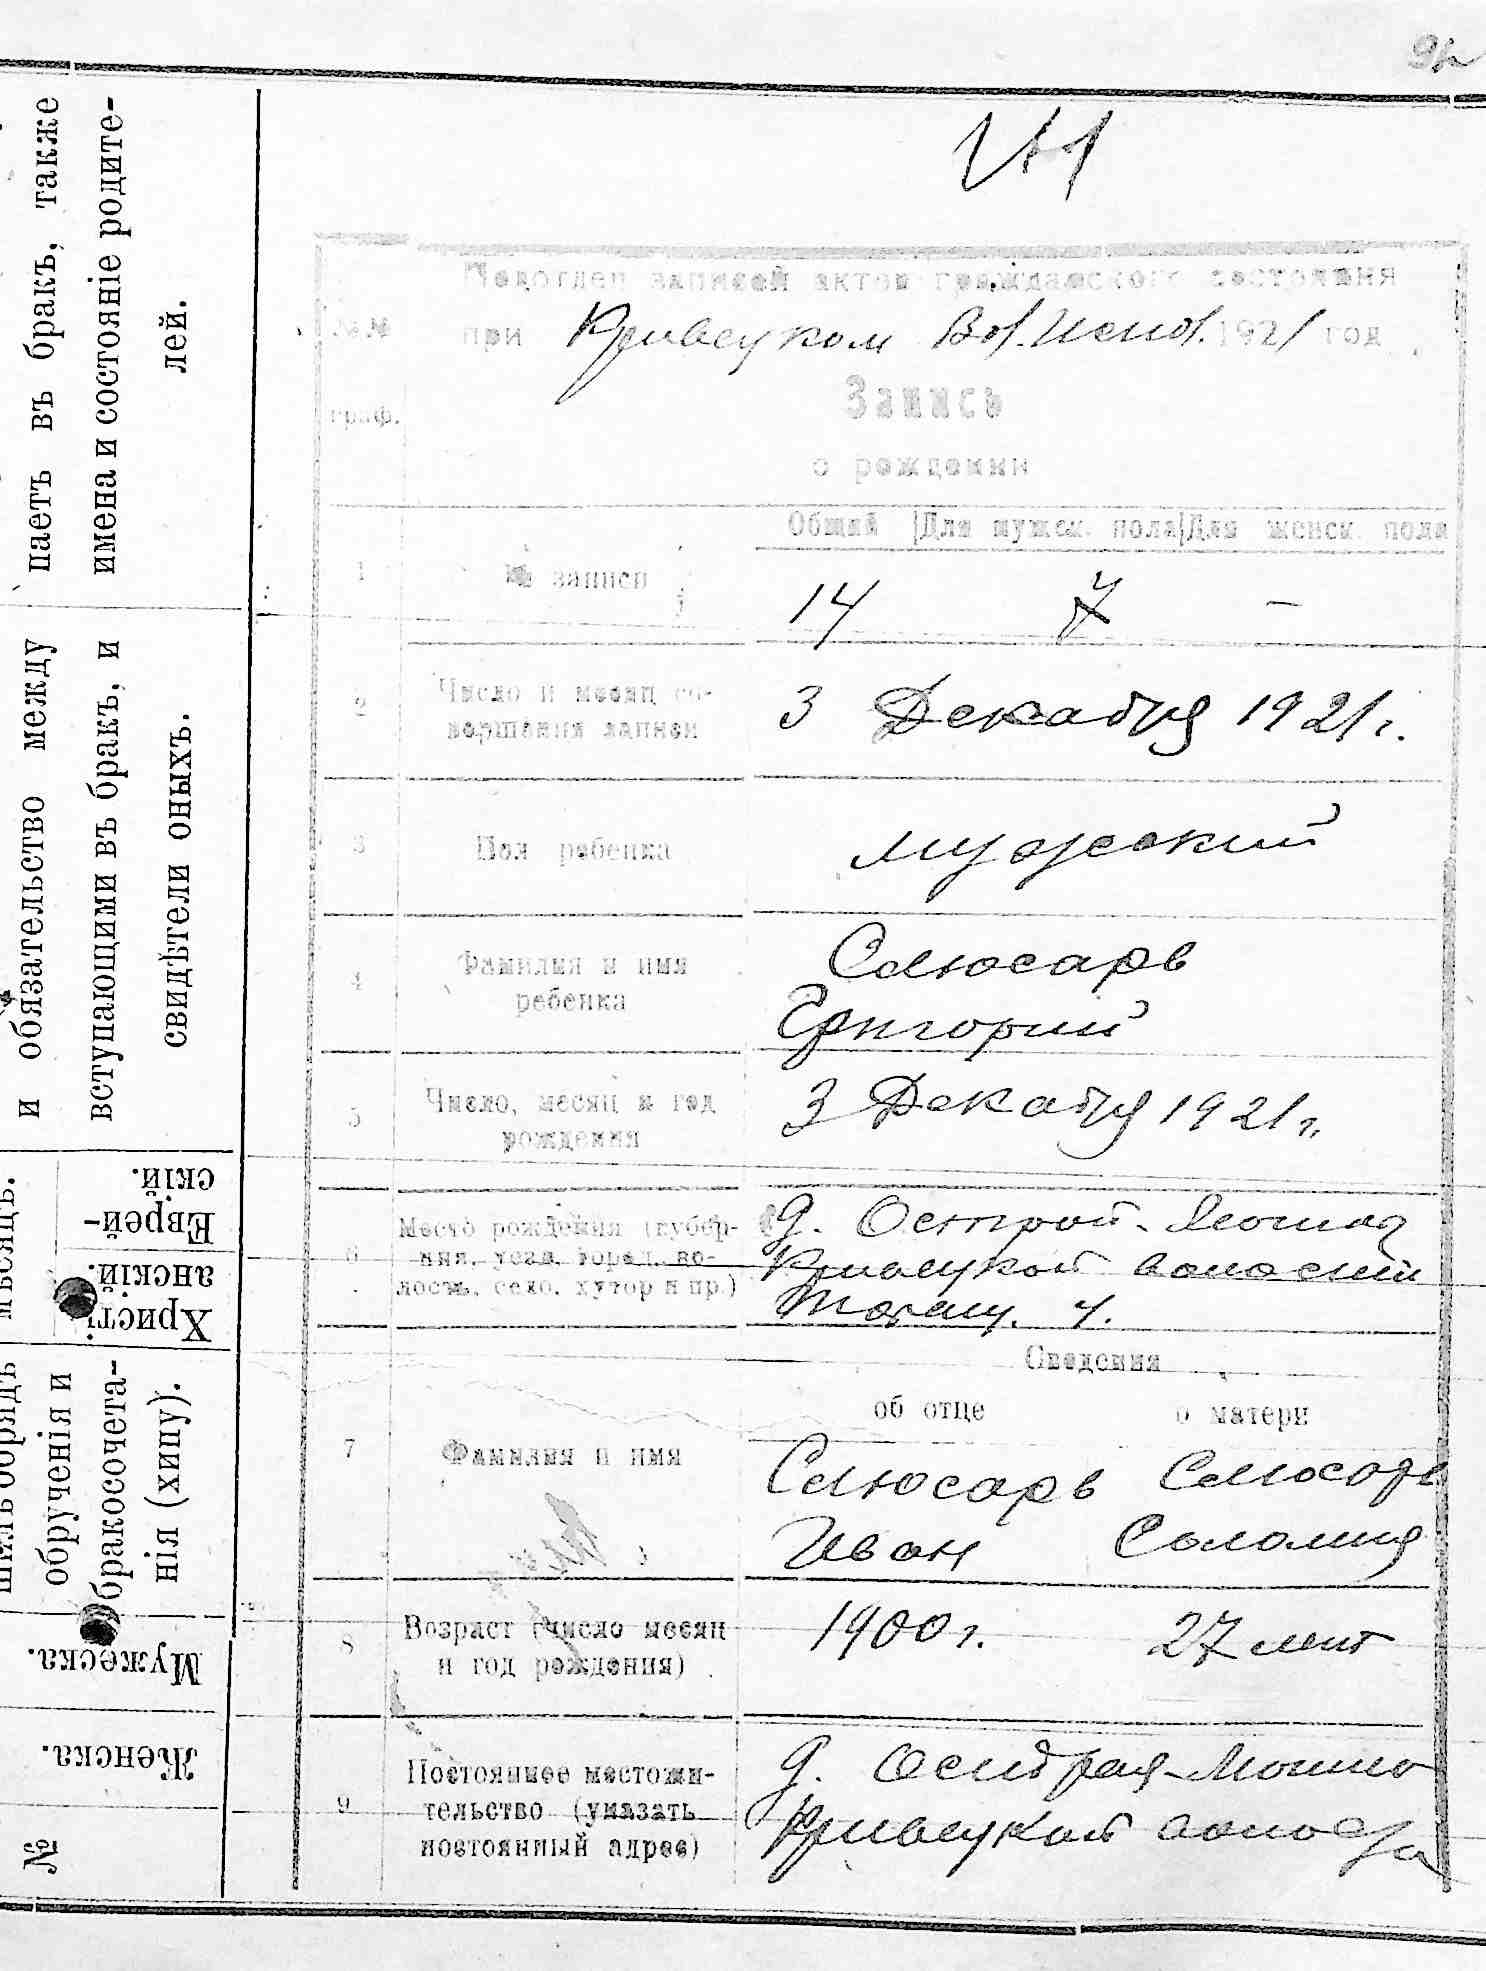 92
№1
Подотдел записей актов гражданского состояния
№№ при Кривецком Вол. Испол. 1921 год
граф.
Запись
о рождении
Общий Для мужск. пола Для женск. пола
1 № записи 14 7 –
2 Число и месяц со-
вершения записи
3 Декабря 1921 г.
3 Пол ребенка мужский
4 Фамилия и имя
ребенка
Слюсарь
Григорий
5 Число, месяц и год
рождения
3 Декабря 1921 г.
6 Место рождения (губер-
ния, уезд, город, во-
лость, село, хутор и пр.)
д. Острой-
Кривецкой волости
у.
Сведения
об отце о матери
7 Фамилия и имя
Слюсарь Слюсарь
Иван Соломия
8 Возраст (число месяц
и год рождения)
1900 г. 27 лет
9 Постоянное местожи-
тельство (указать
постоянный адрес)
д. Острая-
Кривецкой
паетъ въ бракъ, также
имена и состояніе родите-
лей.
и обязательство между
вступающими въ бракъ, и
свидѣтели оныхъ.
мѣсяцъ.
Еврей-
скій.
Христі-
анскій.
обрядъ
обрученія и
бракосочета-
нія (хипу).
Мужеска.
Женска.
№